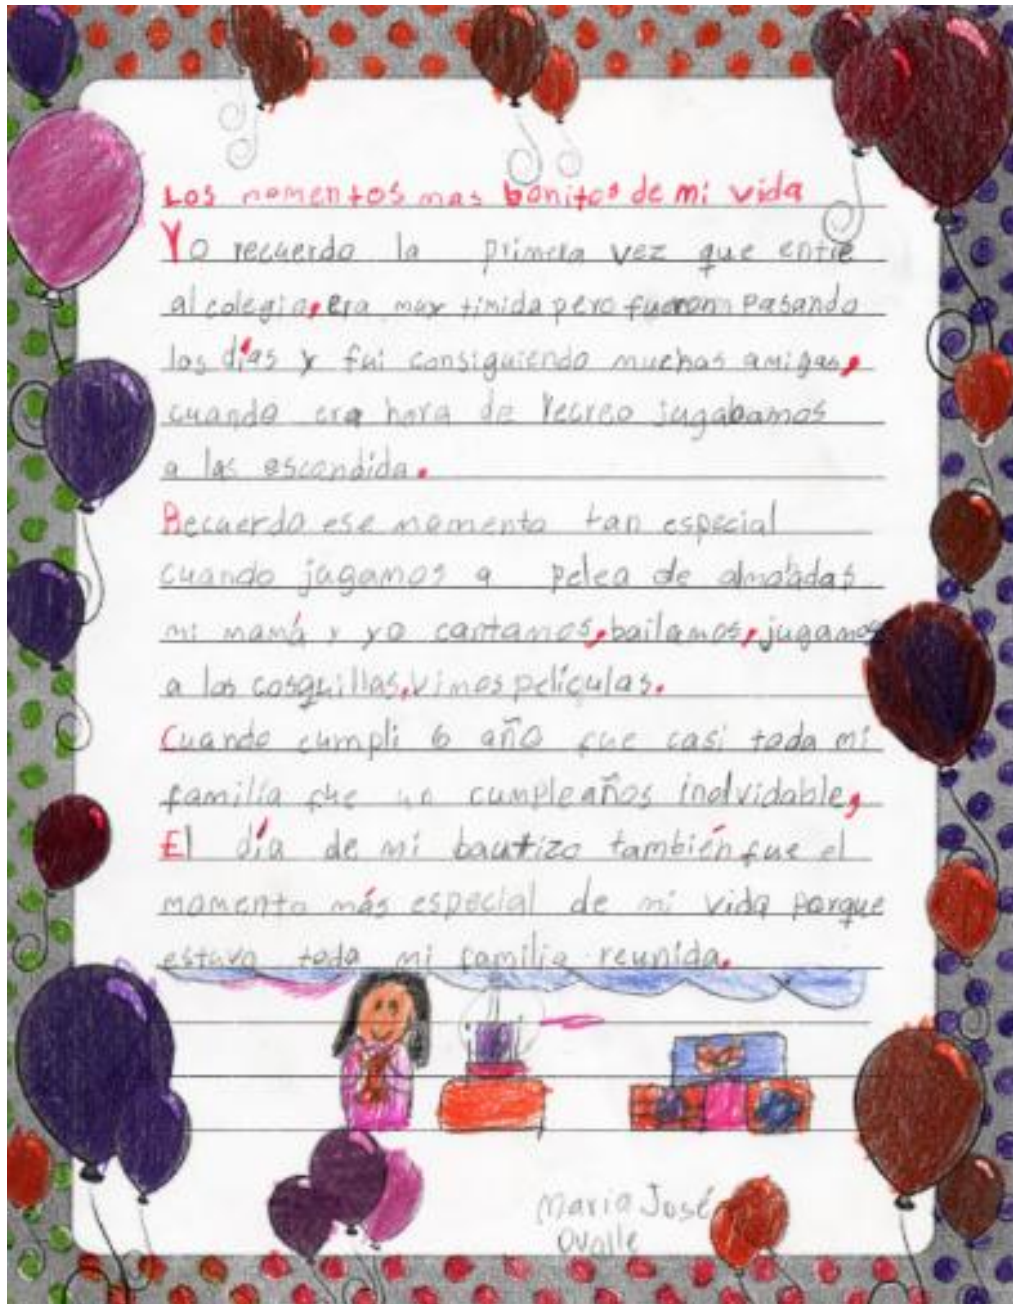 Los momentos mas bonitos de mi vida
Yo recuerdo la primera vez que entre
al colegio, era muy timida pero fueron pasando
los días y fui consiguiendo muchas amigas,
cuando era hora de recreo jugabamos
a las escondida.
Recuerdo ese momento tan especial
cuando jugamos a pelea de almoadas
mi mamá y yo cantamos, bailamos, jugamos
a las cosquillas, vimos peliculas.
Cuando cumpli 6 año fue casi toda mi
familia fue un cumpleaños inolvidable,
El día de mi bautizo también fue el
momento más especial de mi vida porque
estuvo toda mi familia reunida.
Maria José
Ovalle